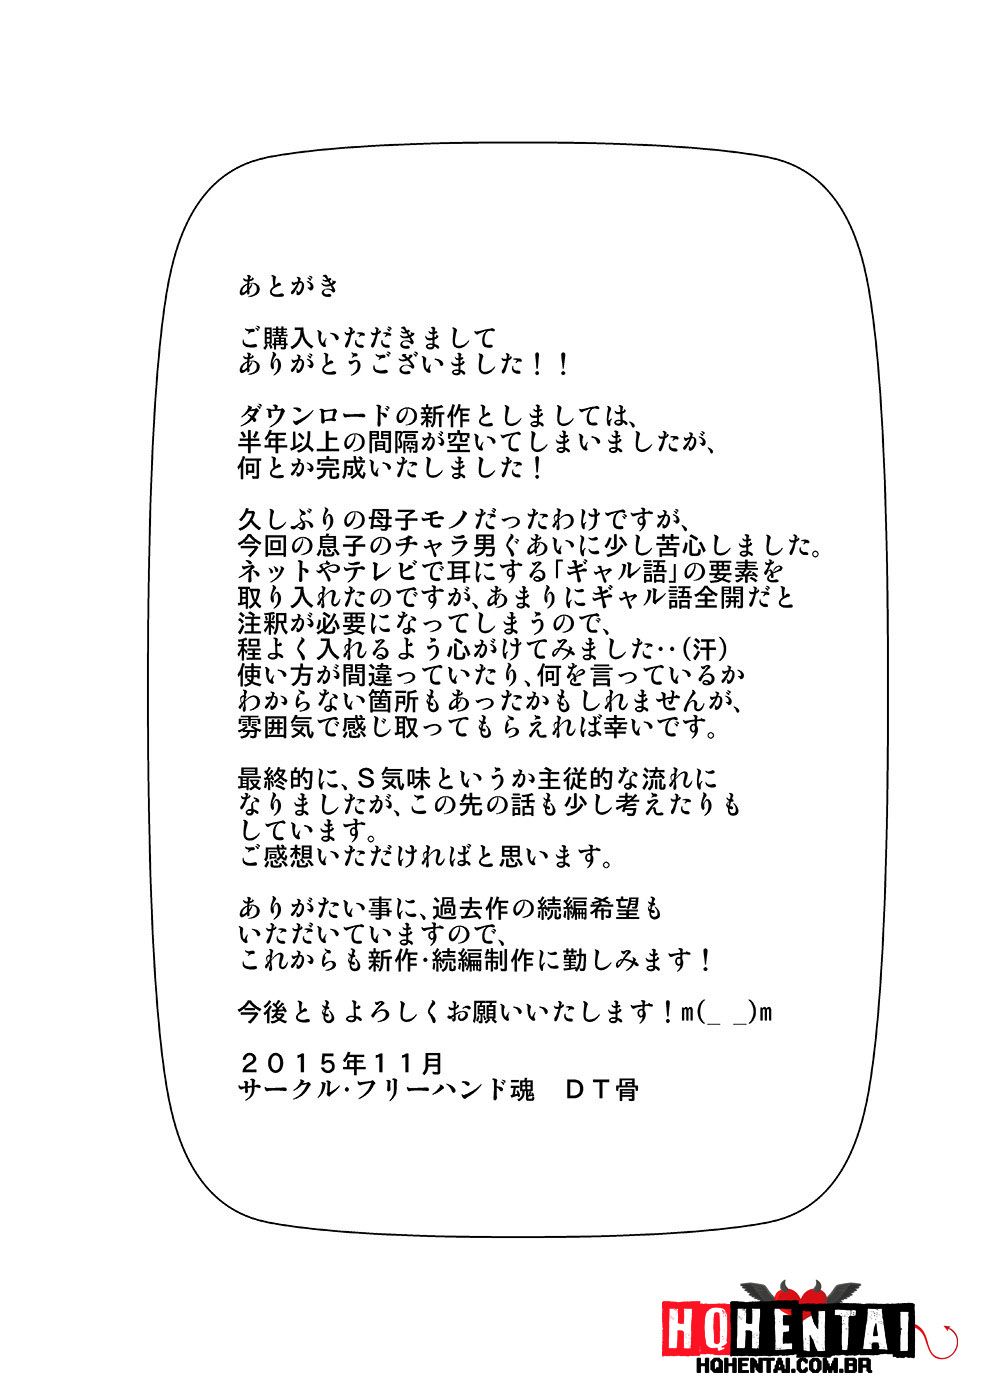 あとがき
ご購入いただきまして
ありがとうございました！！
ダウンロードの新作としましては、
半年以上の間隔が空いてしまいましたが、
何とか完成いたしました！
久しぶりの母子モノだったわけですが、
今回の息子のチャラ男ぐあいに少し苦心しました。
ネットやテレビで耳にする「ギャル語」の要素を
取り入れたのですが、あまりにギャル語全開だと
注釈が必要になってしまうので、
程よく入れるよう心がけてみました‥（汗）
使い方が間違っていたり、何を言っているか
わからない箇所もあったかもしれませんが、
雰囲気で感じ取ってもらえれば幸いです。
最終的に、Ｓ気味というか主従的な流れに
なりましたが、この先の話も少し考えたりも
しています。
ご感想いただければと思います。
ありがたい事に、過去作の続編希望も
いただいていますので、
これからも新作・続編制作に勤しみます！
今後ともよろしくお願いいたします！m(_ _)m
２０１５年１１月
サークル・フリーハンド魂　ＤＴ骨
HQHENTAI
HQHENTAI.COM.BR